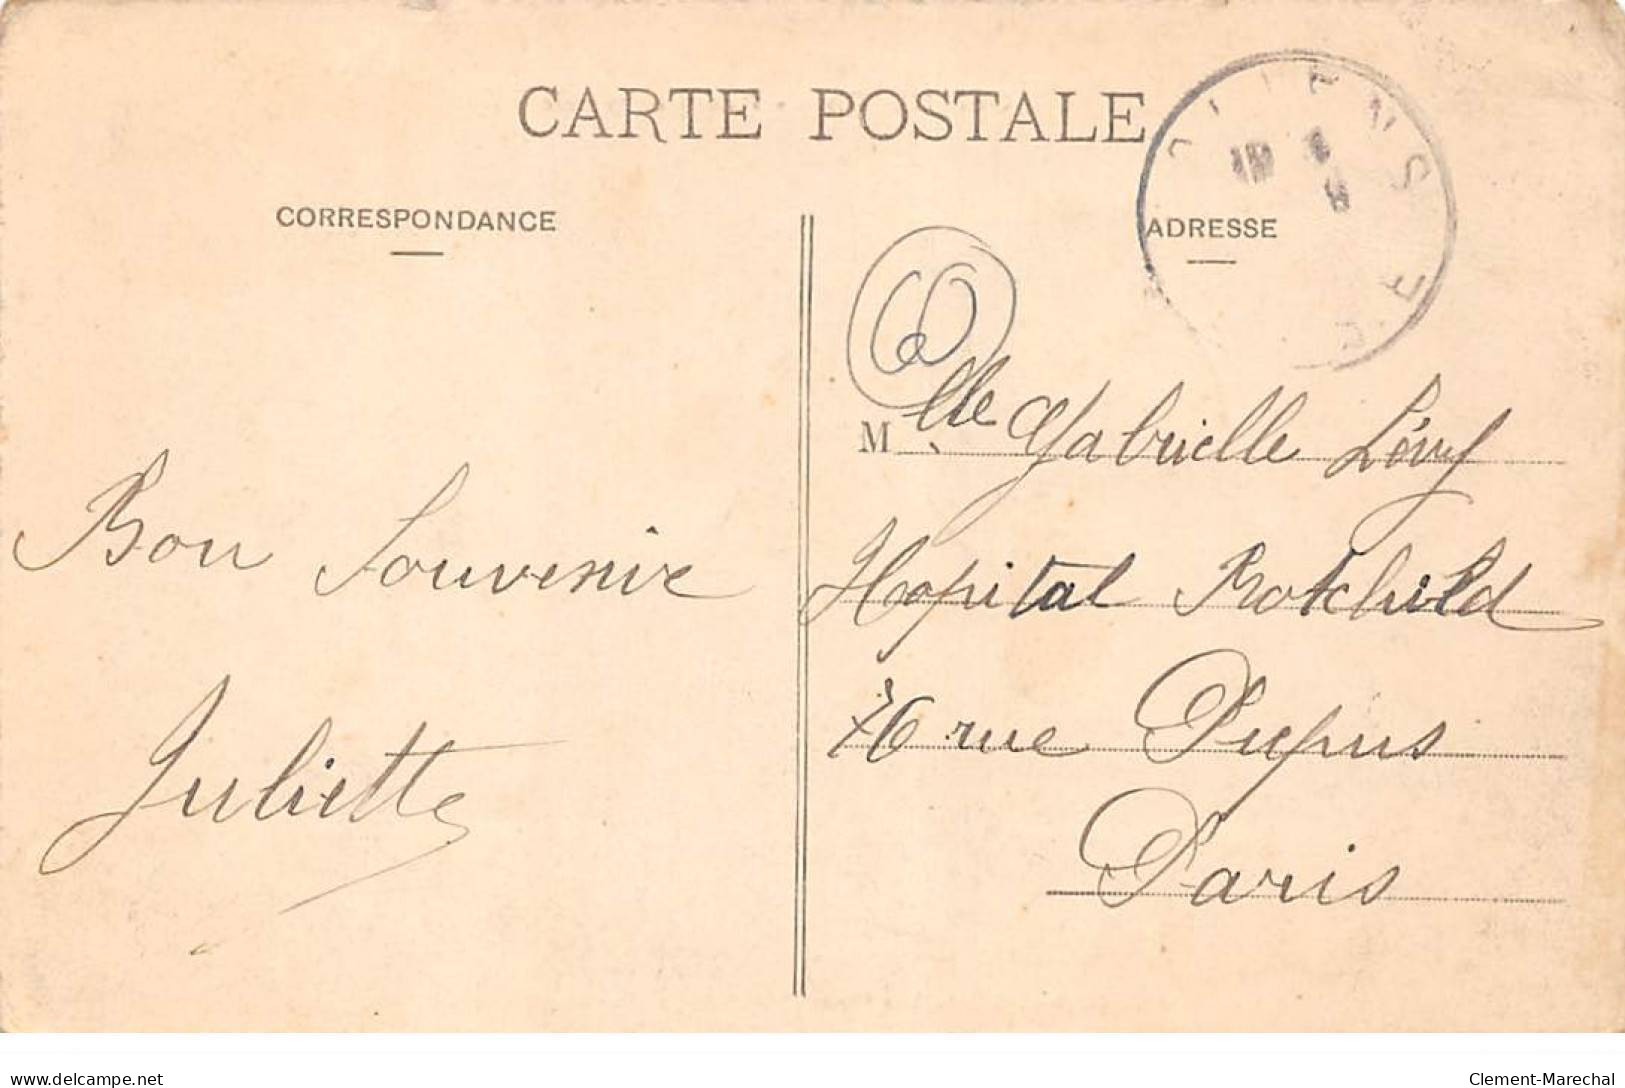 CARTE POSTALE
CORRESPONDANCE
ADRESSE
6
Mlle Gabrielle Lévy
Hopital Rotchild
76 rue Picpus
Paris
Bon Souvenir
Juliette
delcampe.net
Clement-Marechal